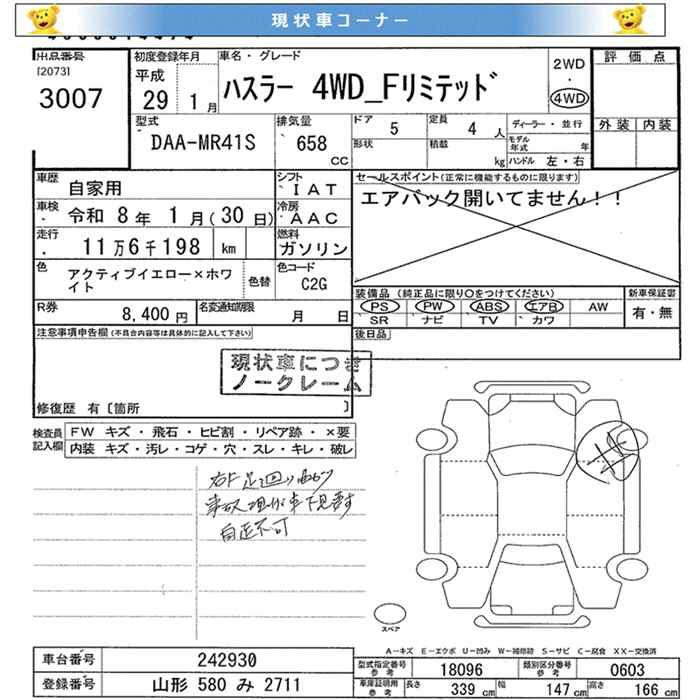 現状車コーナー
出品番号
[2073]
3007
初度登録年月
平成
29 1月
車名・グレード
ハスラー 4WD_Fリミテッド
2WD
・
4WD
評価点
外装 内装
型式
DAA-MR41S
排気量
658
CC
ドア
5
定員
4人
形状
積載
kg
ディーラー・並行
モデル
年式 年
ハンドル 左・右
車歴
自家用
シフト
IAT
セールスポイント(正常に機能するものに限ります)
エアバック開いてません!!
車検
令和 8年 1月(30日)
冷房
AAC
走行
11万6千198 km
燃料
ガソリン
色
アクティブイエロー×ホワイト
色替
色コード
C2G
装備品(純正品に限り○をつけてください)
PS PW ABS エアB AW
SR ナビ TV カワ
新車保証書
有・無
R券
8,400円
名変通知期限
月 日
後日品
注意事項申告欄(不具合内容等は具体的に記入して下さい)
現状車につき
ノークレーム
修復歴 有〔箇所 〕
検査員
記入欄
FW キズ・飛石・ヒビ割・リペア跡・×要
内装 キズ・汚レ・コゲ・穴・スレ・キレ・破レ
右F足廻り曲り
事故現状車下見要
自走不可
スペア
A−キズ E−エクボ U−凹み W−補修跡 S−サビ C−腐食 XX−交換済
車台番号
242930
登録番号
山形 580 み 2711
型式指定番号
参考
18096
類別区分番号
参考
0603
車庫証明用
参考
長さ
339 cm
幅
147 cm
高さ
166 cm